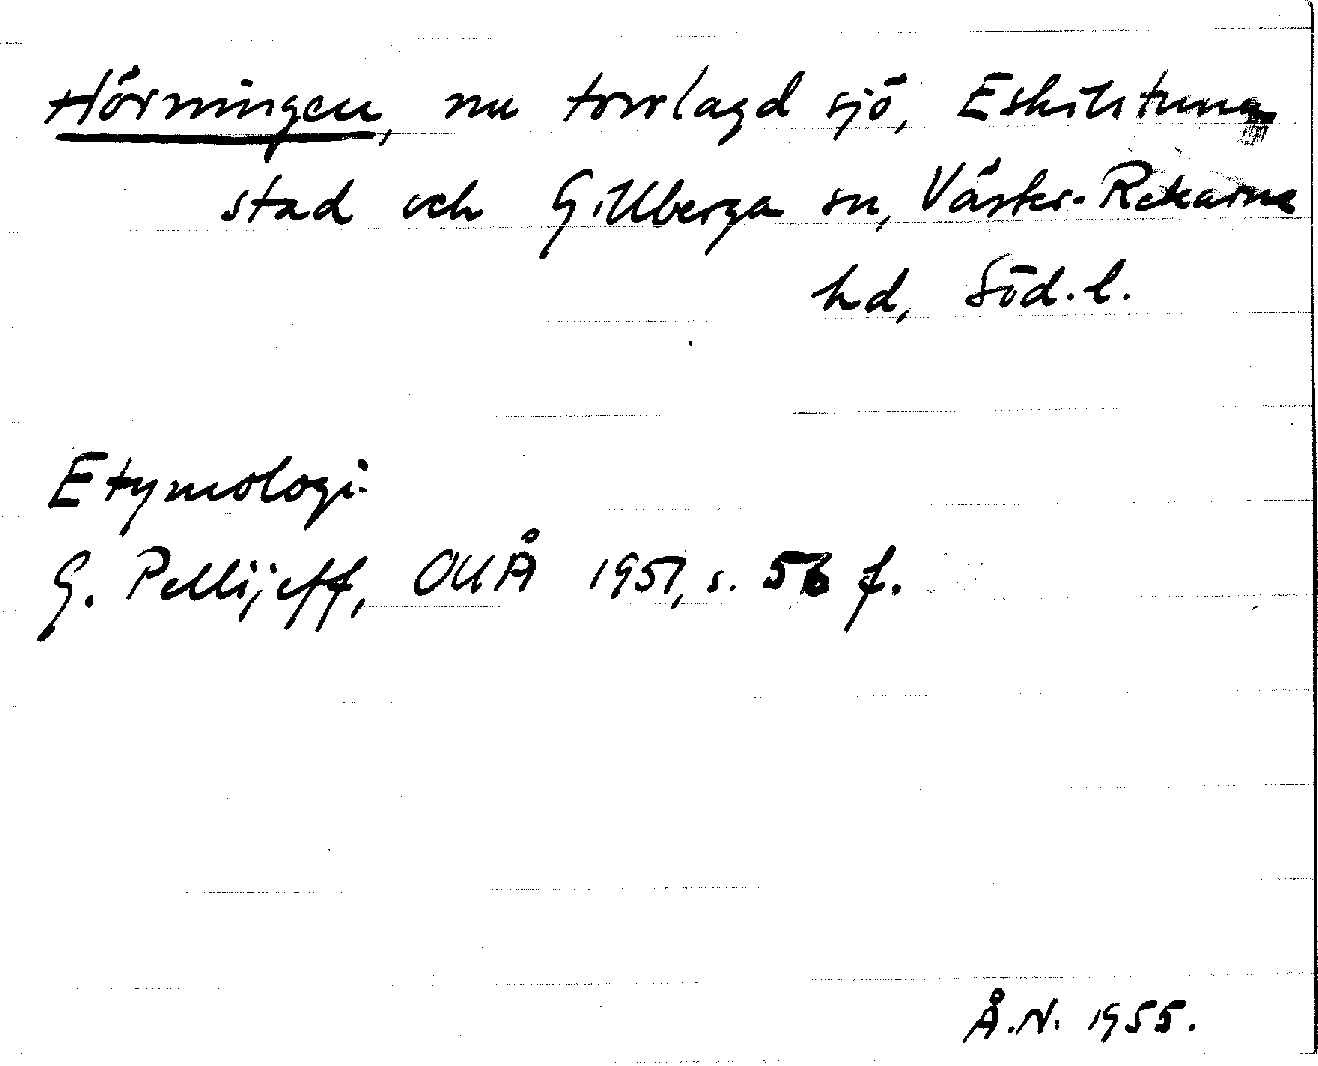 Hörningen, nu torrlagd sjö, Eskilstuna
stad och Gillberga sn, Väster-Rekarne
hd, Söd. l.
Etymologi:
G. Pellijeff, OUÅ 1951, s. 56 f.
Å.N. 1955.